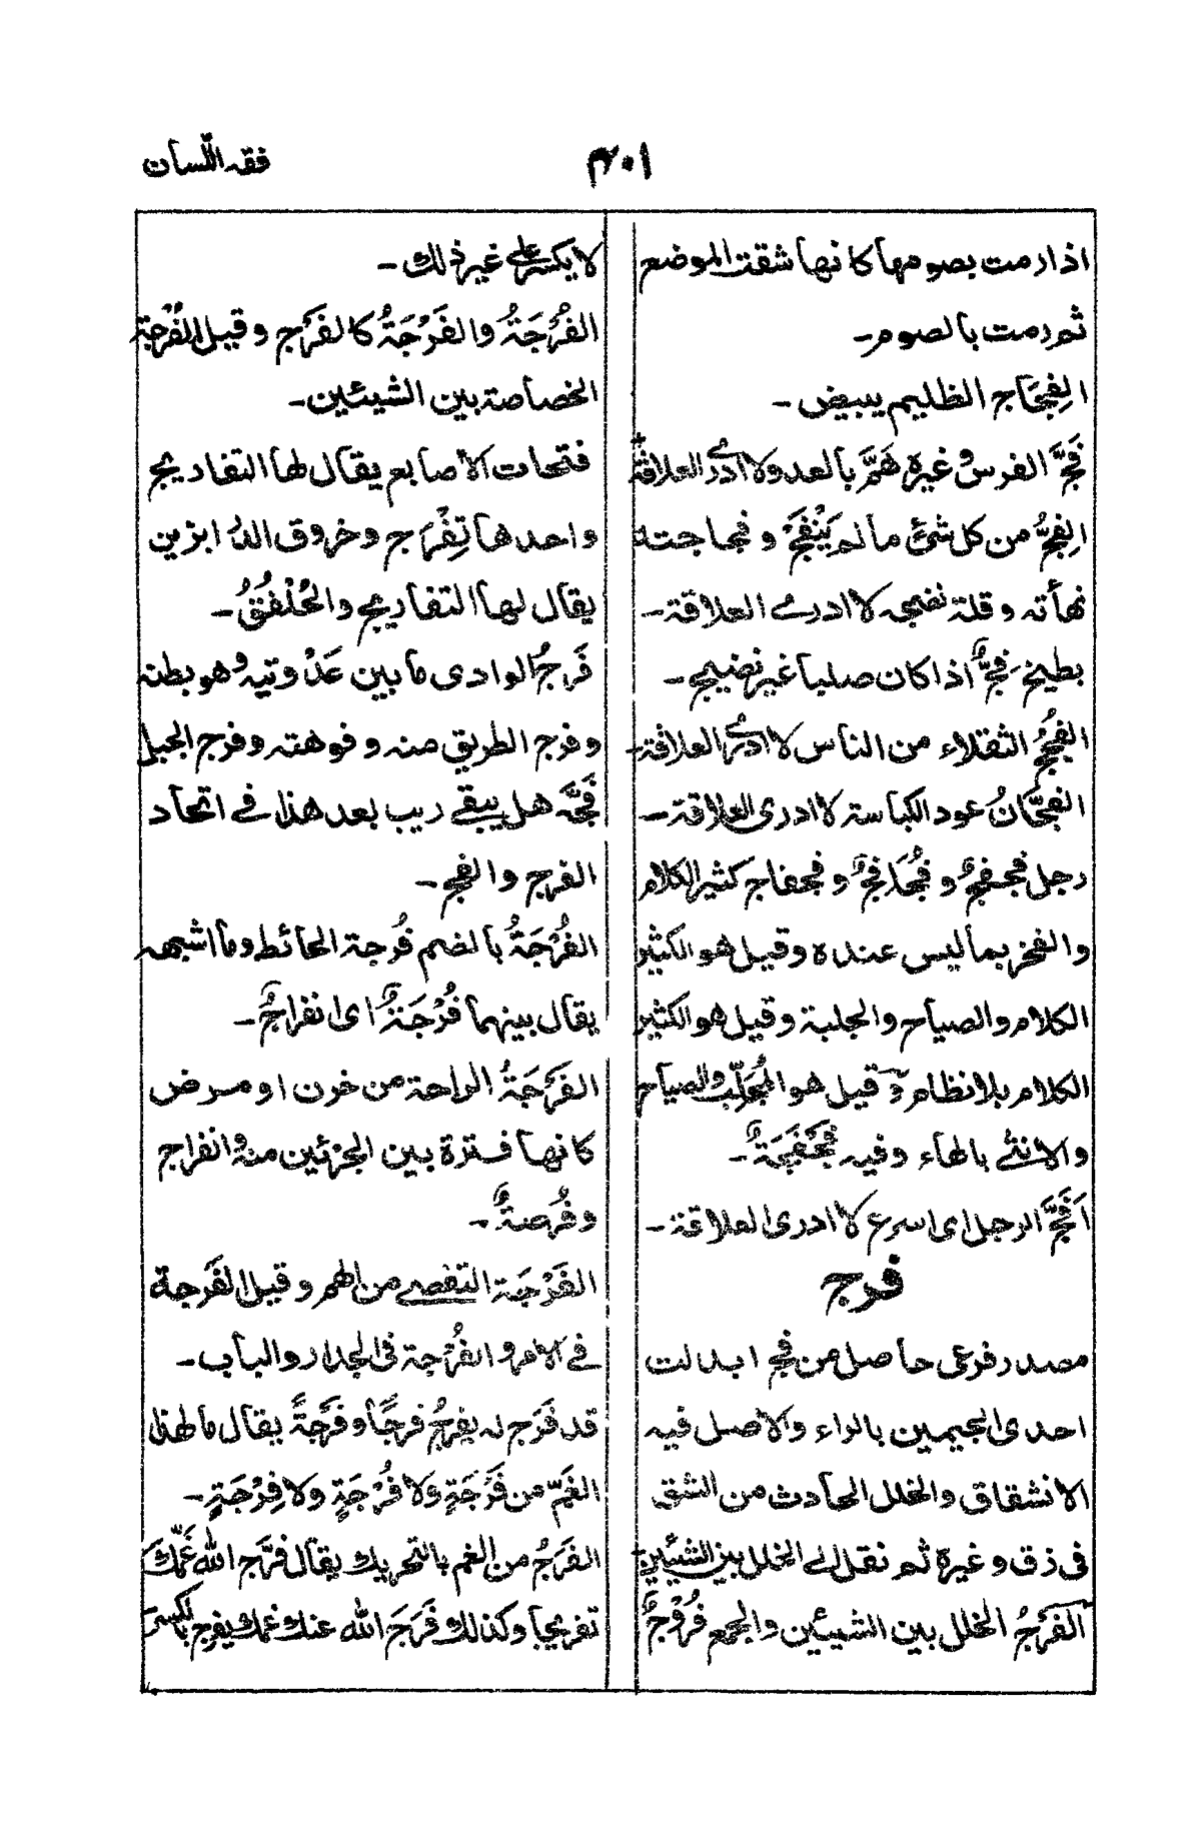 فقه اللسان
٤٠١
اذا رمت بصومها كانها شقت الموضع
ثم رمت بالصوم۔
الفِجَاج الظليم يبيض۔
فَجَّ الفرس وغيره هَمَّ بالعدو لا ادرى العلاقة
الفِجُّ من كل شئ مالم يَنْفَجْ و فجاجته
نهأته وقلة نضجه لا ادرى العلاقة۔
بطيخ فِجٌّ اذا كان صلبا غير نضيج۔
الفُجُجُ الثقلاء من الناس لا ادرى العلاقة۔
الفجّانُ عود الكباسة لا ادرى العلاقة۔
رجل فجفجٌ و فُجَافِجٌ و فجفاج كثير الكلام
والفخر بما ليس عنده وقيل هو الكثير
الكلام والصياح والجلبة وقيل هو الكثير
الكلام بلا نظام وقيل هو المُجَلِّب والصياح
والانثى بالهاء وفيه فَجْفَجَةٌ۔
اَفَجَّ الرجل اى اسرع لا ادرى العلاقة۔
فرج
مصدر فرعى حاصل من فج ابدلت
احدى الجيمين بالراء والاصل فيه
الانشقاق والخلل الحادث من الشق
فى زق وغيره ثم نقل الى الخلل بين الشيئين
اَلفَرْجُ الخلل بين الشيئين والجمع فُرُوْجٌ
لا يكسر على غير ذالك۔
الفُرْجَةُ والفَرْجَةُ كالفَرْج وقيل الفُرْجة
الخصاصة بين الشيئين۔
فتحات الاصابع يقال لها التفاريج
واحدها تِفْرَاج وخروق الدُ ابزين
يقال لها التفاريج والحُلْفُقُ۔
فَرجُ الوادى ما بين عَدْوتيه وهو بطنه
وفرج الطريق منه وفوهته وفرج الجبل
فَجَّه هل يبقى ريب بعد هذا فى اتحاد
الفرج والفج۔
الفُرْجَةُ بالضم فُرجة الحائط وما اشبهه
يقال بينهما فُرْجَةٌ اى انفراجٌ۔
الفَرْجَةُ الراحة من حزن او مرض
كانها فترة بين الجزئين منه وانفراج
وفُرصةٌ۔
الفَرْجَة التفصى من الهم وقيل الفَرجة
فى الامر والفُرْجة فى الجدار والباب۔
قد فَرَج له يفرِجُ فرجًا وفَرْجَةً يقال ما لهذا
الغَمّ من فَرْجَةٍ ولا فُرْجَةٍ ولا فِرْجَةٍ۔
الفَرَجُ من الغم بالتحريك يقال فرَّج الله غَمَّكَ
تفريجا وكذلك فَرَجَ الله عنك غمك يفرِج بالكسر